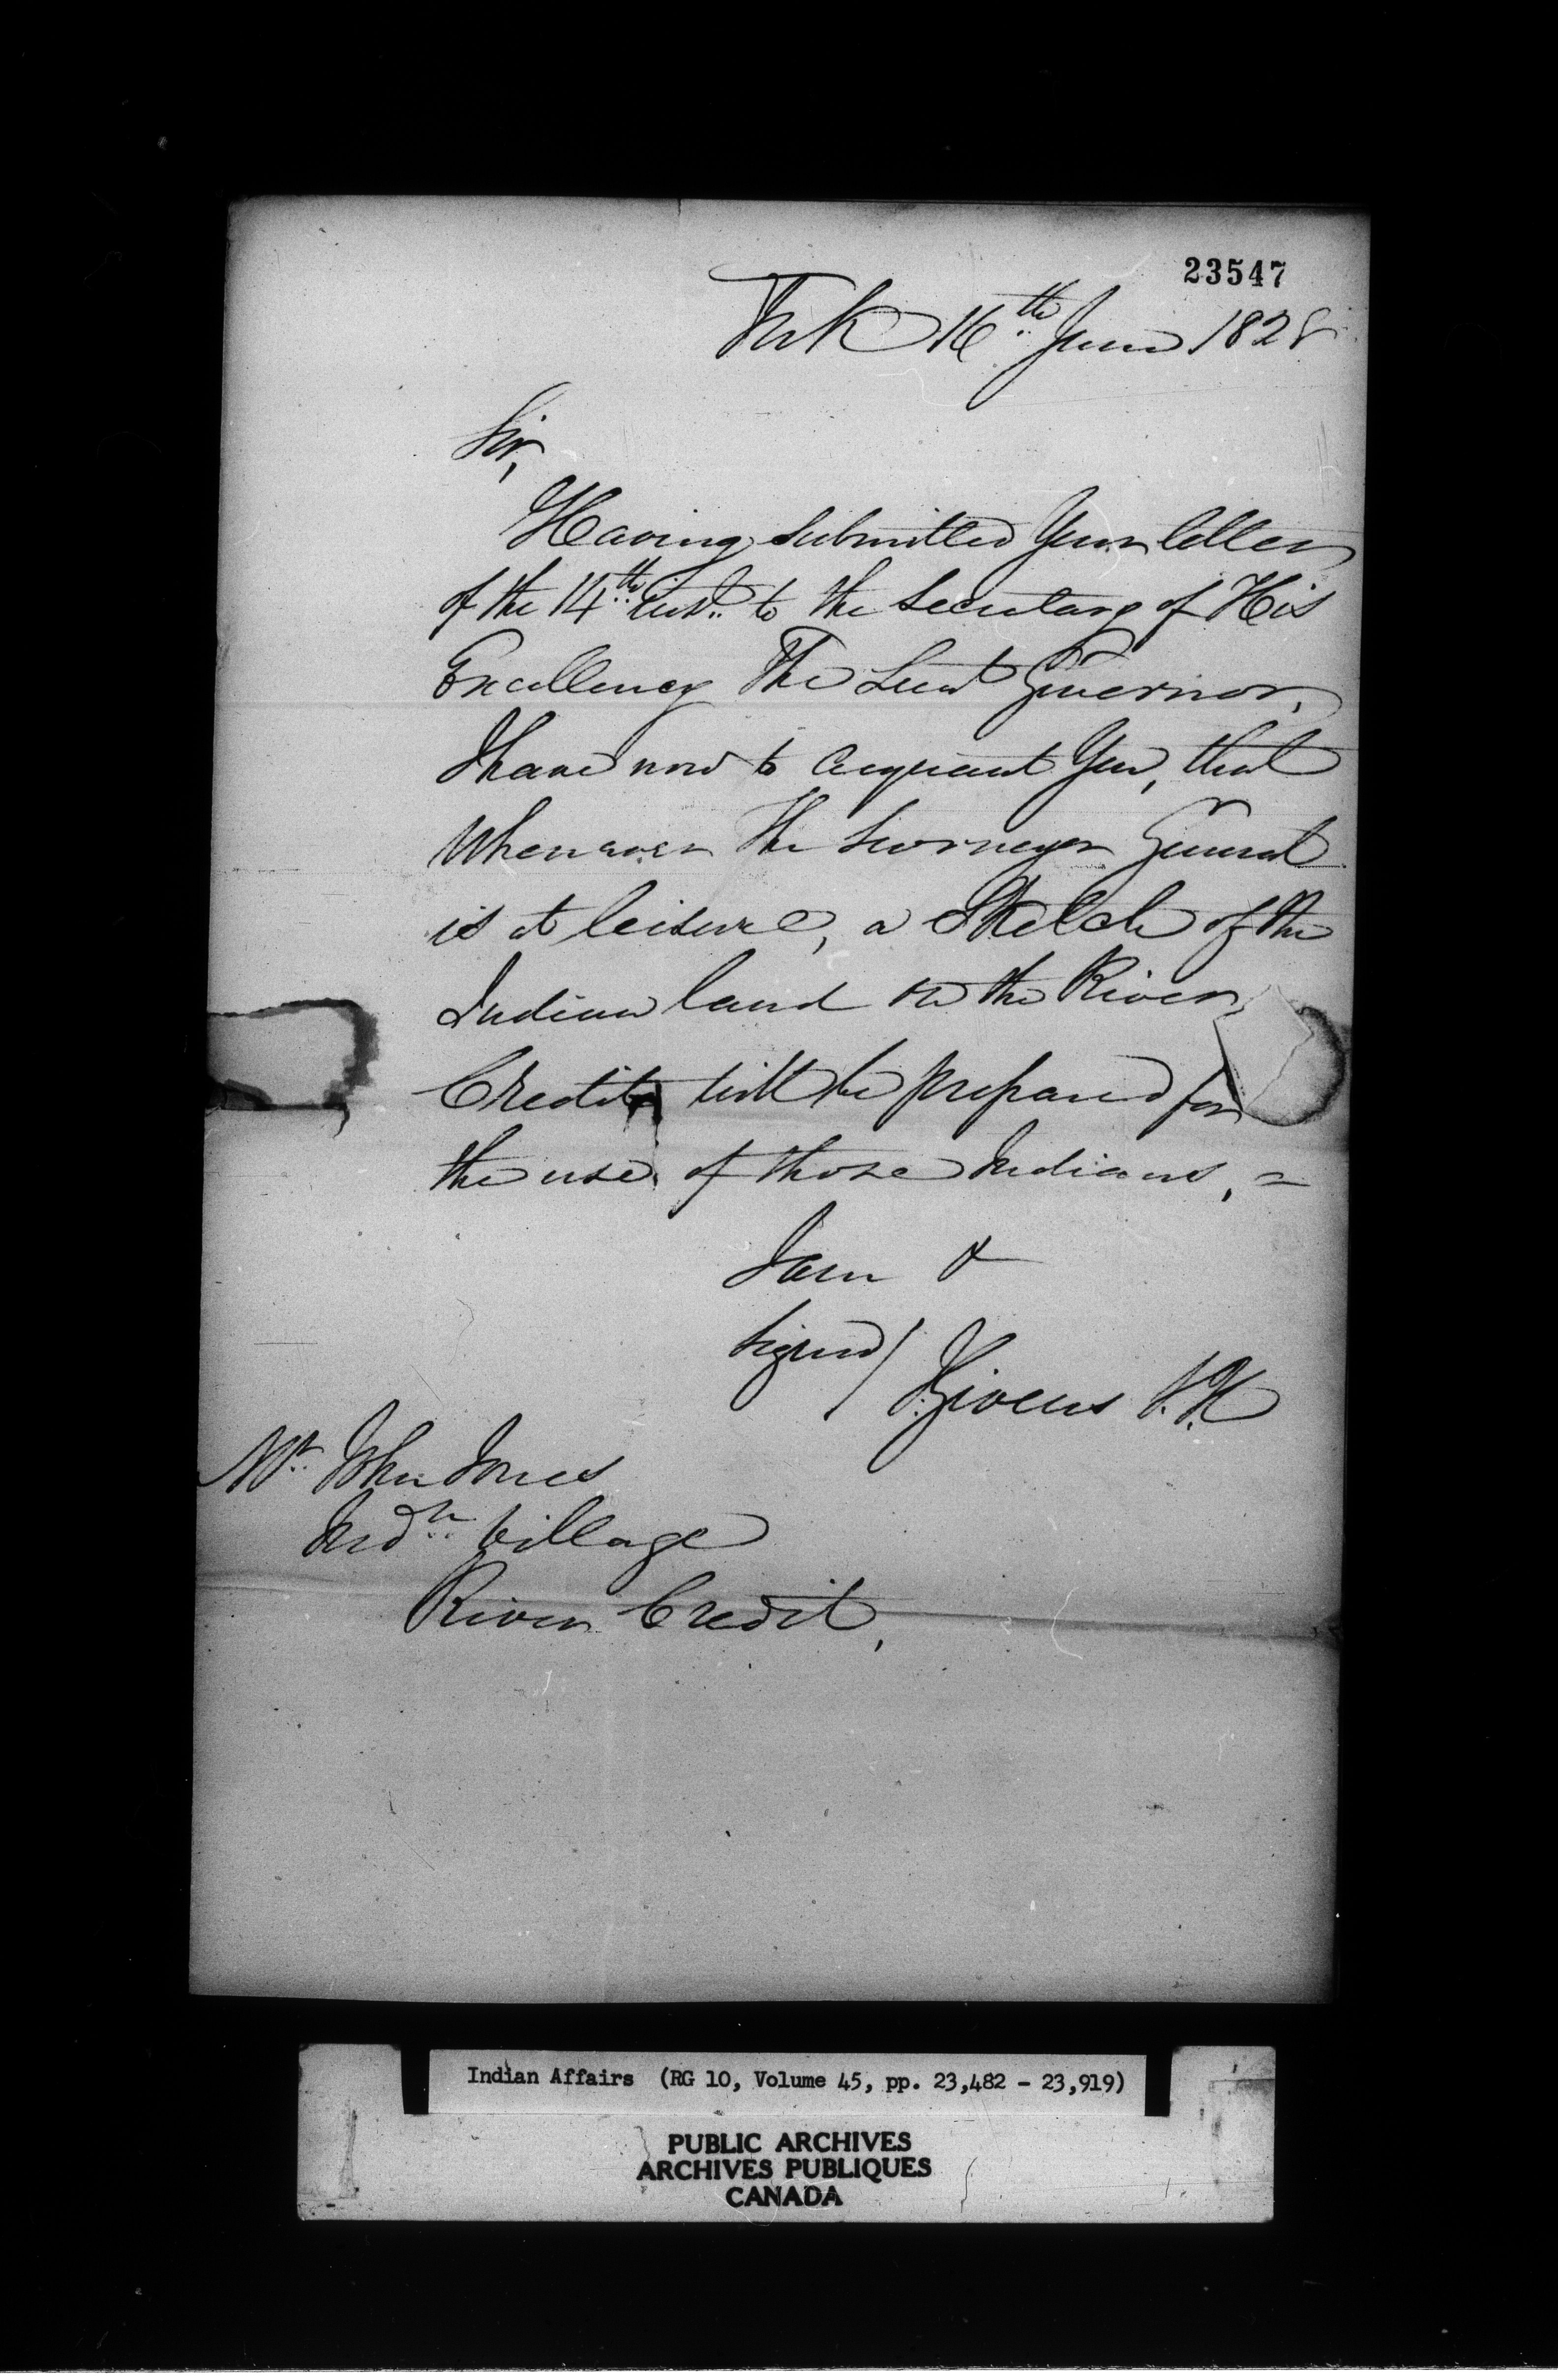 23547
York 16th June 1828
Sir,
Having submitted Your letter
of the 14th inst. to the Secretary of His
Excellency The Lieut Governor,
I have now to acquaint You, that
Whenever The Surveyor General
is at leisure, a Sketch of the
Indian land on the River
Credit will be prepared for
the use of those Indians, =
I am &
Signed / J. Givens S. I.
Mr. John Jones
Indn Village
River Credit,
Indian Affairs (RG 10, Volume 45, pp. 23,482 - 23,919)
PUBLIC ARCHIVES
ARCHIVES PUBLIQUES
CANADA